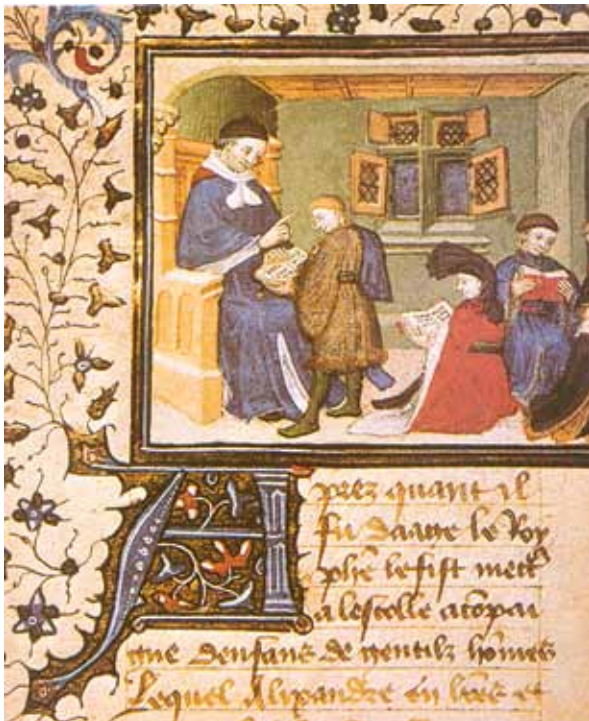 Aprez quant il
fu daage le Roy
phē le fist mett
a lescolle acōpai
gne denfans de gentilz hōmes
Lequel Alixandre en lr̄es et